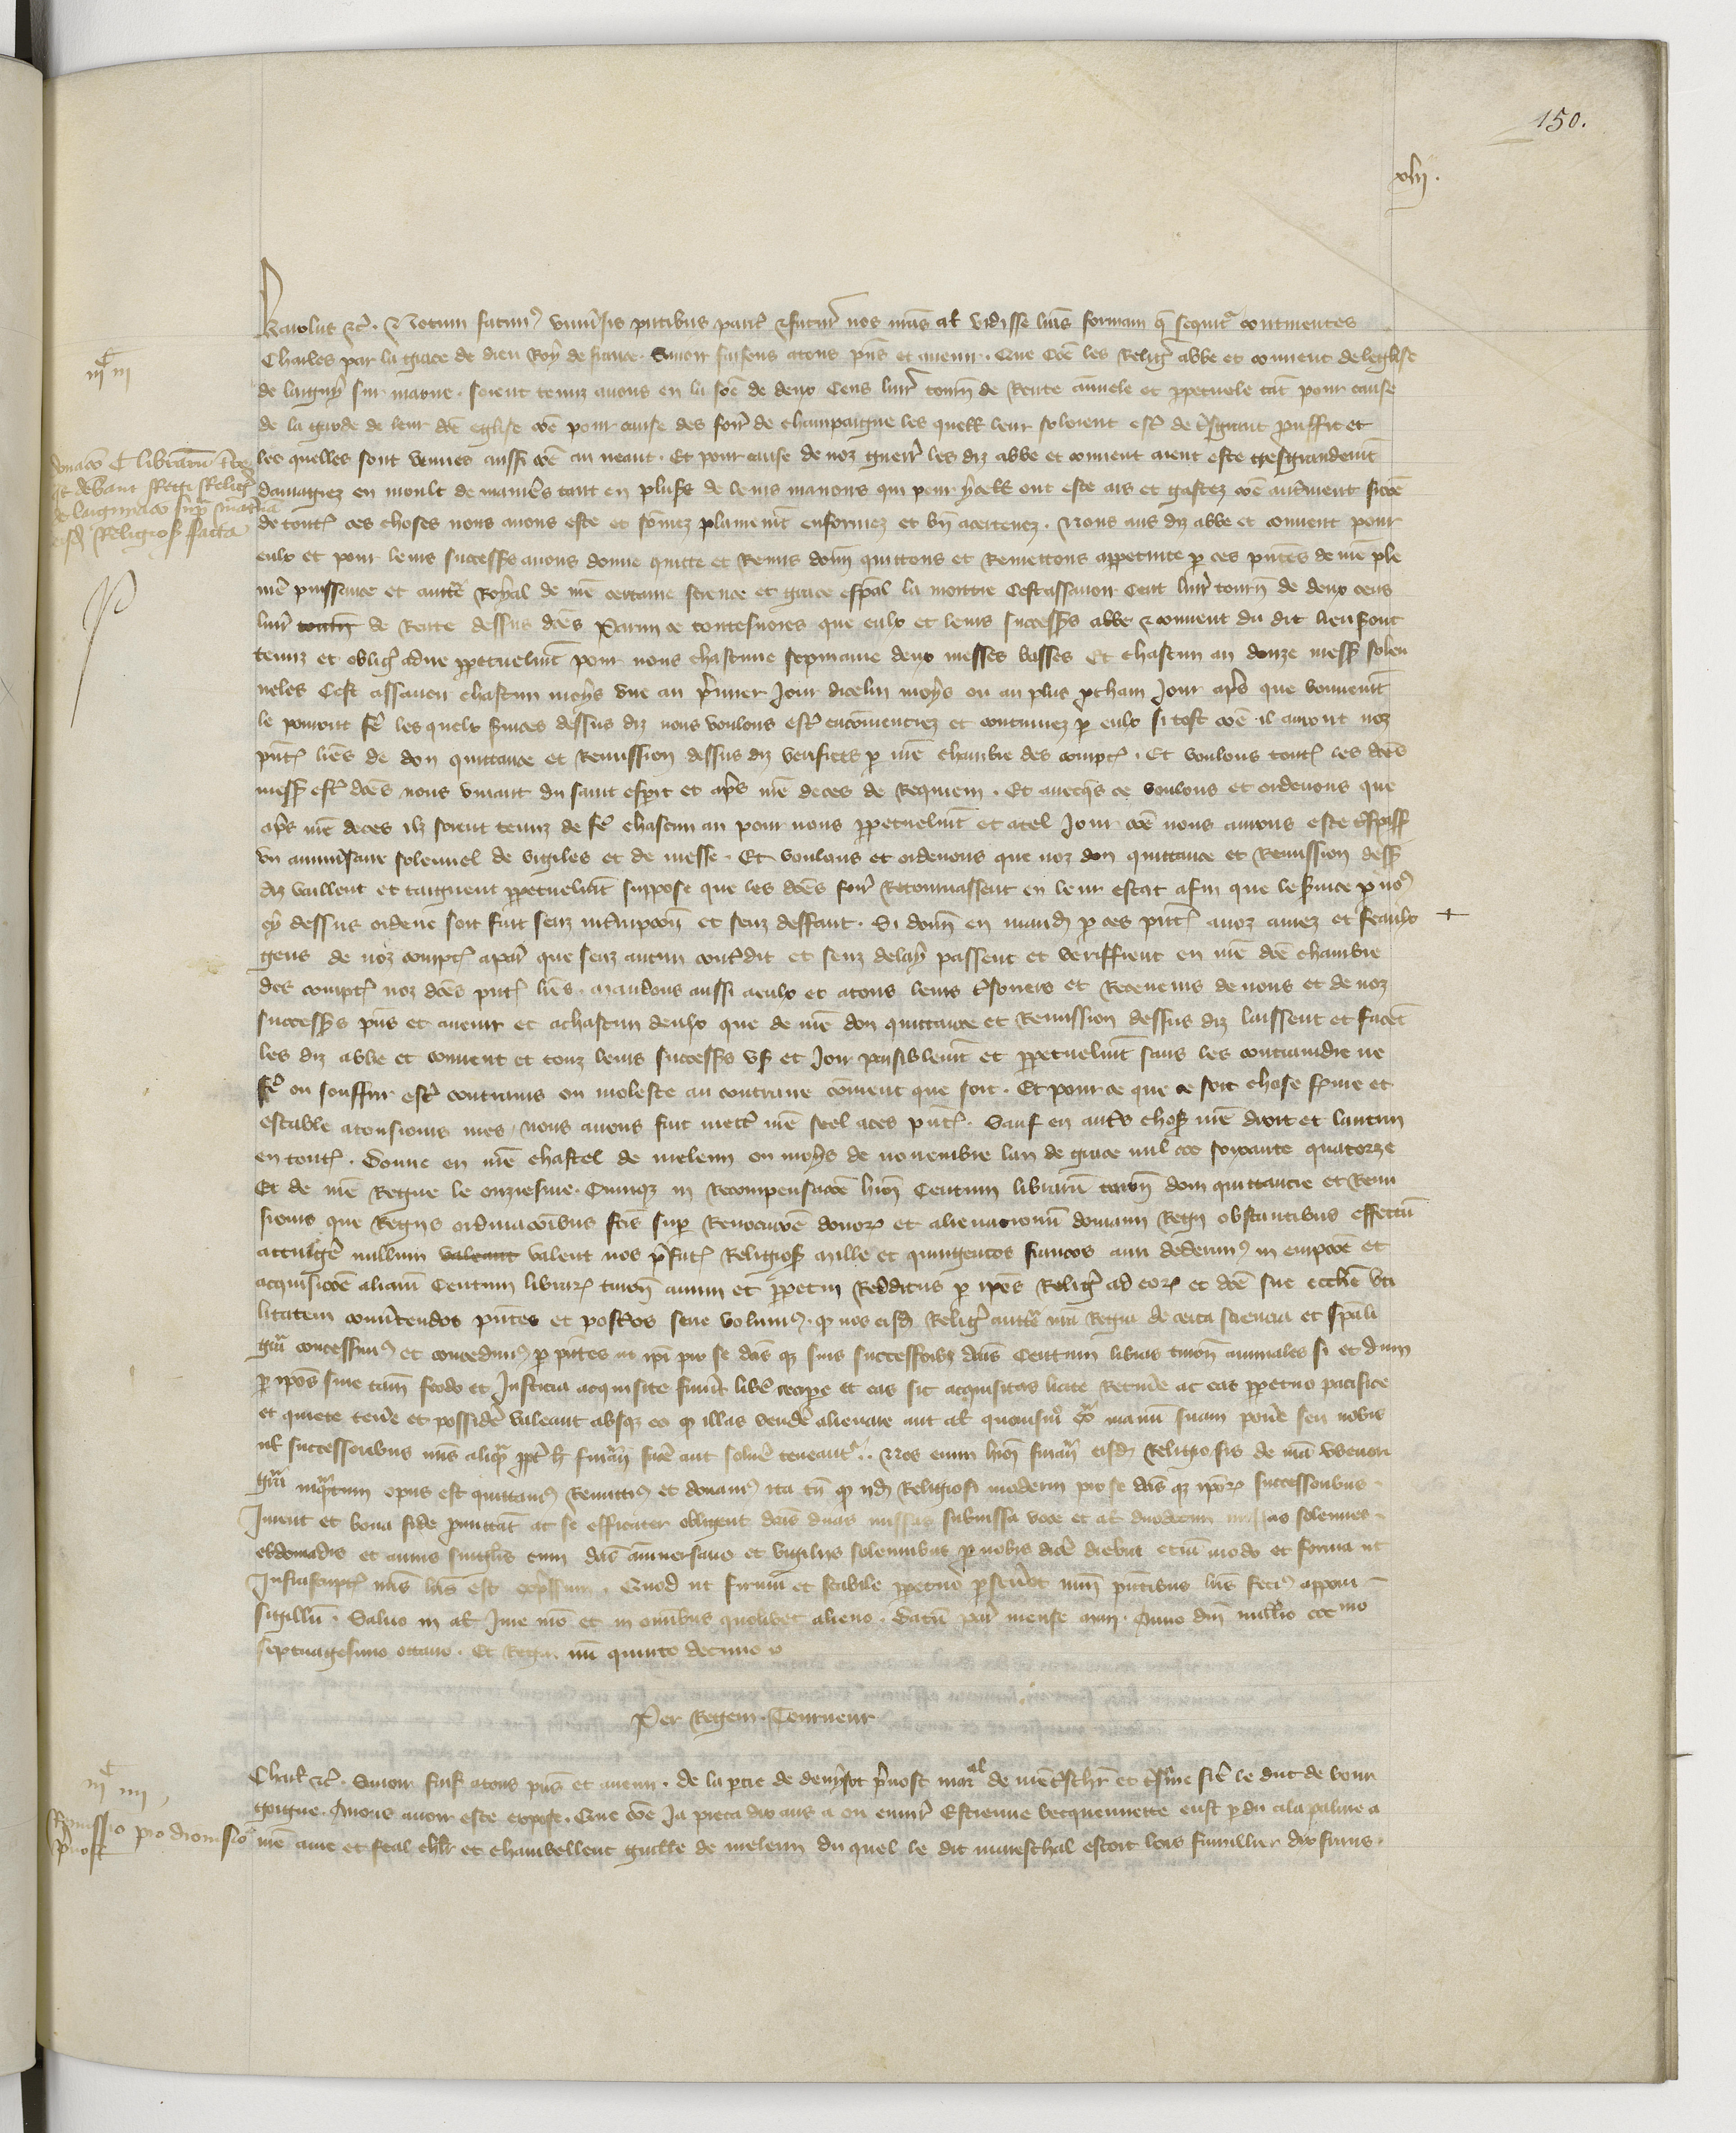 150.
xlij.
Karolus etc. Notum facimus universis presentibus pariter et futuris nos nostras al. vidisse litteras formam que sequitur continentes
Charles par la grace de dieu Roy de france. Savoir faisons a tous presens et avenir. Que comme les Religieux abbe et convent de leglise
de laigny sur marne. soient tenuz a nous en la somme de deux Cens livres tournois de Rente annuele et perpetuele tant pour cause
de la garde de leur dicte eglise comme pour cause des foires de champaigne les quelles leur soloient estre de tresgrant prouffit et
les quelles sont venues aussi comme au neant. Et pour cause de noz guerres les diz abbe et convent aient este tresgrandement
damagiez en moult de manieres tant en pluseurs de leurs manoirs qui pour ycelles ont este ars et gastez comme autrement sicomme
de toutes ces choses nous avons este et sommes plainement enformez et bien acertenez. Nous aus diz abbe et convent pour
eulx et pour leurs successeurs avons donne quitte et Remis donnons quittons et Remettons a perpetuite par ces presentes de nostre plein
niere puissance et auctorite Royal de nostre certaine science et grace especial la moittie Cestassavoir Cent livres tournois de deux cens
livres tournois de Rente dessus dictes Parmi ce toutesvoies que eulx et leurs successeurs abbe et convent du dit lieu sont
tenuz et obligiez a dire perpetuelment pour nous chascune sepmaine deux messes basses Et chascun an douze messes solen
neles Cest assavoir chascun moys une au premier Jour dicelui moys ou au plus prochain Jour apres que bonnement
le pourront faire les quelx services dessus diz nous voulons estre encommenciez et continuez par eulx si tost comme il auront noz
presentes lettres de don quittance et Remission dessus diz verifiees par nostre chambre des comptes. Et voulons toutes les dictes
messes estre dictes nous vivant du saint esperit et apres nostre deces de Requiem. Et avecques ce voulons et ordenons que
apres nostre deces ilz soient tenuz de faire chascun an pour nous perpetuelment et a tel Jour comme nous aurons este trespassez
un anniversaire solennel de vigiles et de messe. Et voulons et ordenons que noz don quittance et Remission dessus
diz vaillent et taignent perpetuelment suppose que les dictes foires Retournassent en leur estat afin que le service par nous
cy dessus ordene soit fait senz interrupcion et senz deffaut. Si donnons en mandement par ces presentes a noz amez et feaulx
gens de noz comptes a paris que senz aucun contredit et senz delay passent et veriffient en nostre dicte chambre
des comptes noz dictes presentes lettres. Mandons aussi a eulx et a tous leurs tresoriers et Receveurs de nous et de noz
successeurs presens et avenir et a chascun deulx que de nostre don quittance et Remission dessus diz laissent et facent
les diz abbe et convent et touz leurs successeurs user et Joir paisiblement et perpetuelment sans les contraindre ne
faire ou souffrir estre contrains ou moleste au contraire comment que soit. Et pour ce que ce soit chose ferme et
estable a tousiours mes. nous avons fait mettre nostre seel a ces presentes. Sauf en autres choses nostre droit et lautrui
en toutes. Donne en nostre chastel de meleun ou moys de novembre lan de grace mil ccc soixante quatorze
Et de nostre Regne le onziesme. Cumque in Recompensacionem huiusmodi Centum librarum turonensium doni quittancie et Remis
sionis que Regiis ordinacionibus factis super Revocacione donorum et alienacionum domanii Regii obstantibus effectum
attingere nullum valeant valent nos prefatis Religiosis Mille et quingentos francos auri dederimus in empcionem et
acquisicionem aliarum Centum librarum turonensium annui et perpetui Redditus per ipsos Religiosos ad eorum et dicte sue ecclesie uti
litatem convertendos presentes et posteros scire volumus. quod nos eisdem Religiosis auctoritate nostra Regia de certa sciencia et speciali
gracia concessimus et concedimus per presentes ut ipsi pro se dictisque suis successoribus dictas Centum libras turonensium annuales si et dum
per ipsos sine tamen feodo et Justicia acquisite fuerint libere recipere et eas sic acquisitas licite Retinere ac eas perpetuo pacifice
et quiete tenere et possidere valeant absque eo quod illas vendere alienare aut al. quovismodo extra manum suam ponere seu nobis
vel successoribus nostris aliquam propter hoc financiam facere aut solvere teneantur. Nos enim huiusmodi financiam eisdem Religiosis de nostra uberiori
gracia inquantum opus est quittamus Remittimus et donamus ita tamen quod iidem Religiosi moderni pro se dictisque ipsorum successoribus
Jurent et bona fide promittant ac se efficaciter obligent dictas duas missas submissa voce et al. duodecim missas solennes
ebdomadis et annis singulis cum dictis anniversario et vigiliis solennibus pro nobis dicere diebus eciam modo et forma ut
Infrascriptis nostris litteris est expressum. Quod ut firmum et stabile perpetuo perseveret nostrum presentibus litteris fecimus apponi
sigillum. Salvo in al. Jure nostro et in omnibus quolibet alieno. Datum parisius mense maii. Anno domini millesimo ccc mo
septuagesimo octavo. Et Regni nostri quinto decimo
Per Regem. Tourneur
Charles etc. Savoir faisons a tous presens et avenir. De la partie de denysot prevost mareschal de nostre treschier et tresame frere le duc de bour
goigne. Nous avoir este expose. Que comme Ja pieca dix ans a ou environ Estienne becquennette eust perdu a la palme a
nostre ame et feal chevalier et chambellent guillaume de meleun du quel le dit mareschal estoit lors familier dix frans.
iijC iij
donacio C librarum turonensium
quas debebant Regi Religiosi
de laigniaco super maternam
eisdem Religiosis facta
iijC iiij
Remissio pro dionisio
prevost